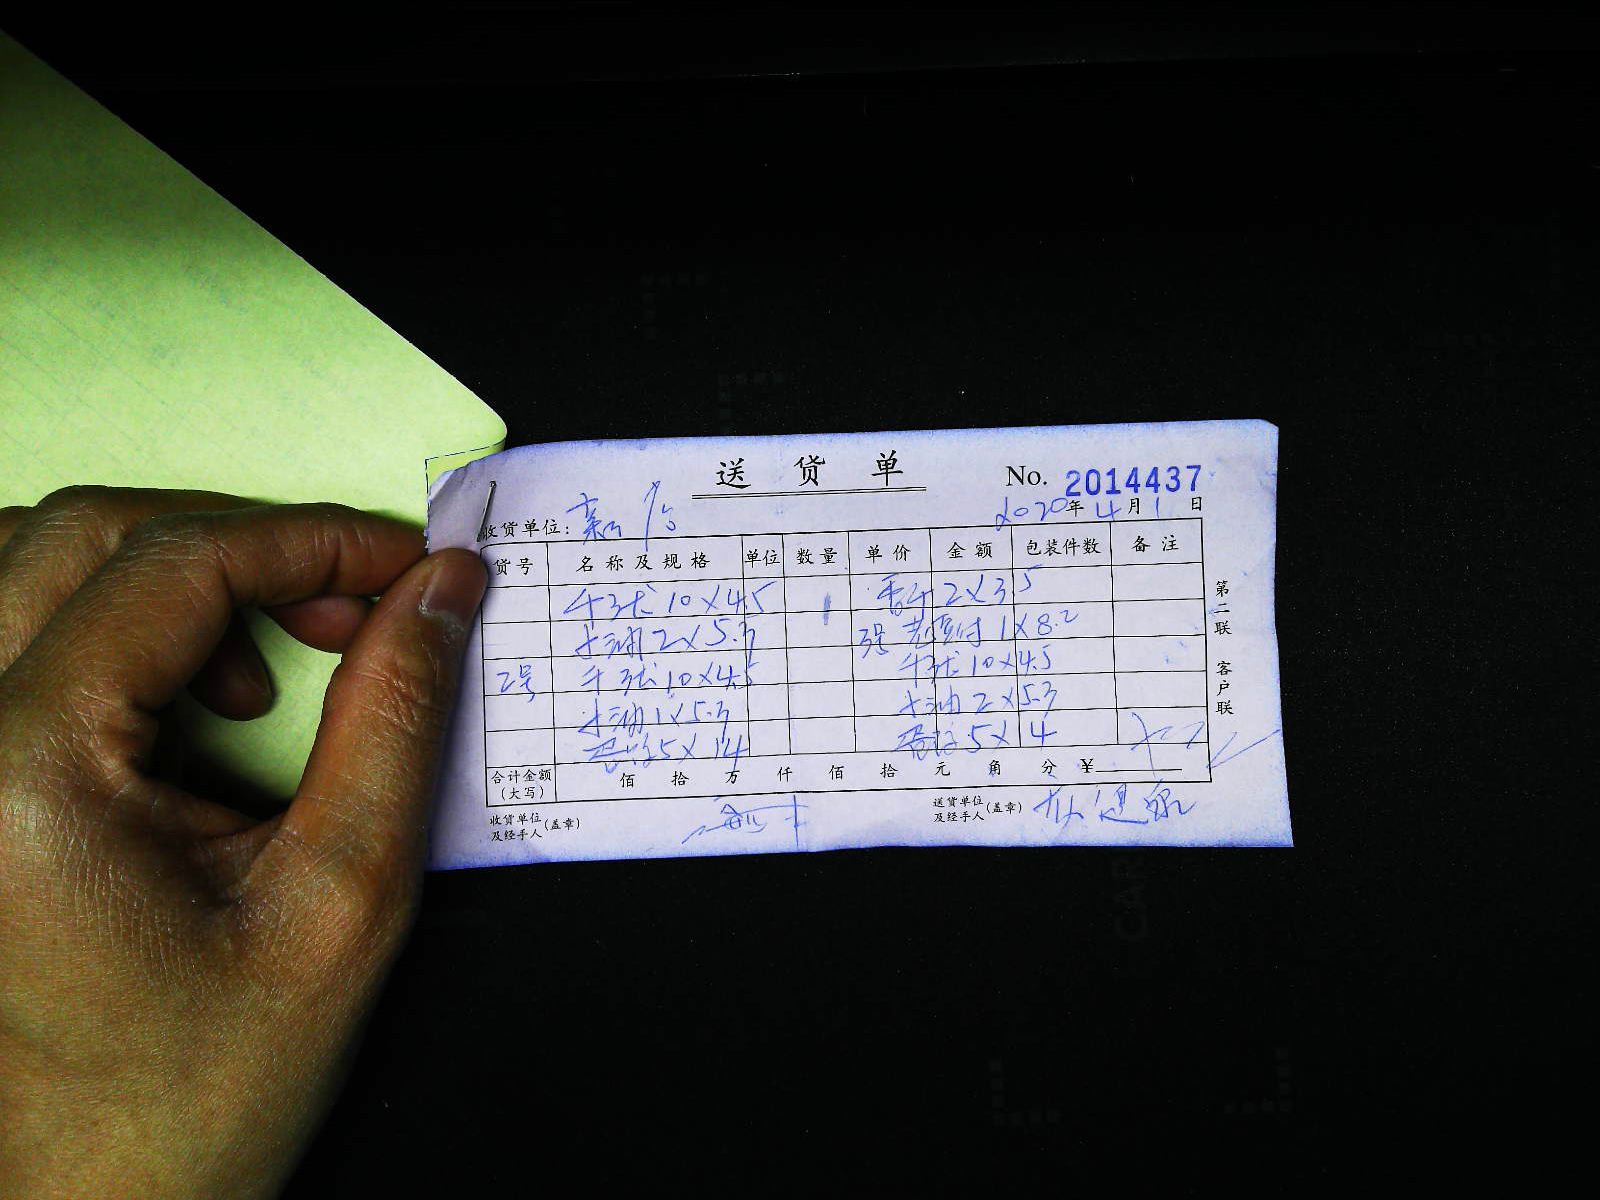 送 货 单 No. 2014437
收货单位: 2020年 4月 1日
货号 名称及规格 单位 数量 单价 金额 包装件数 备注
千张 10×4.5 香干 2×3.5
油 2×5.3 1×8.2
2号 千张 10×4.5 千张 10×4.5
油 1×5.3 油 2×5.3
5×14 5×14
合计金额(大写) 佰 拾 万 仟 佰 拾 元 角 分 ¥
收货单位及经手人(盖章) 送货单位及经手人(盖章)
第二联 客户联
CAR